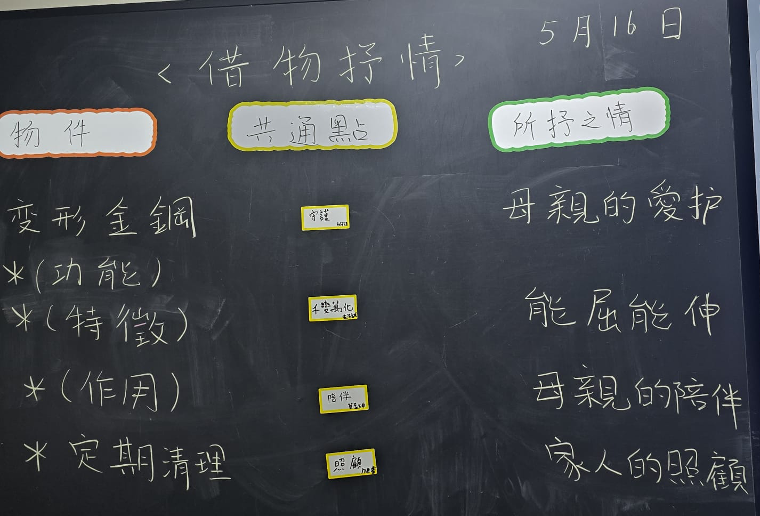 5月16日
<借物抒情>
物件 共通點 所抒之情
变形金鋼 守護 母親的愛护
*(功能)
*(特徵) 千變萬化 能屈能伸
*(作用) 陪伴 母親的陪伴
*定期清理 照顧 家人的照顧